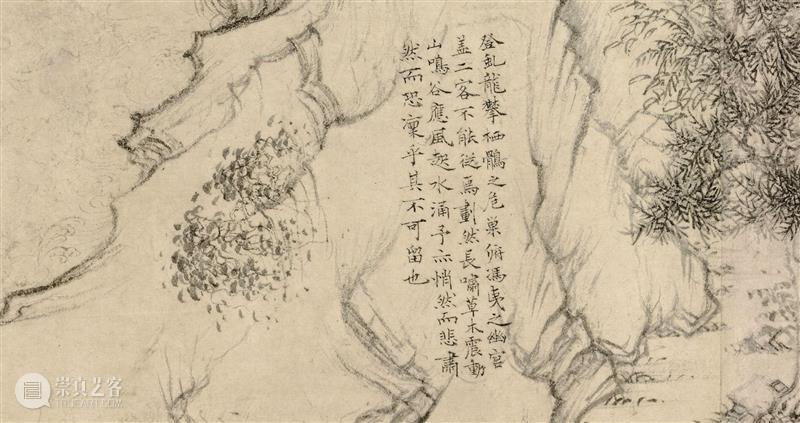 登虬龍攀栖鶻之危巢俯馮夷之幽宮
盖二客不能從焉劃然長嘯草木震動
山鳴谷應風起水涌予亦悄然而悲肅
然而恐凜乎其不可留也
崇真艺客